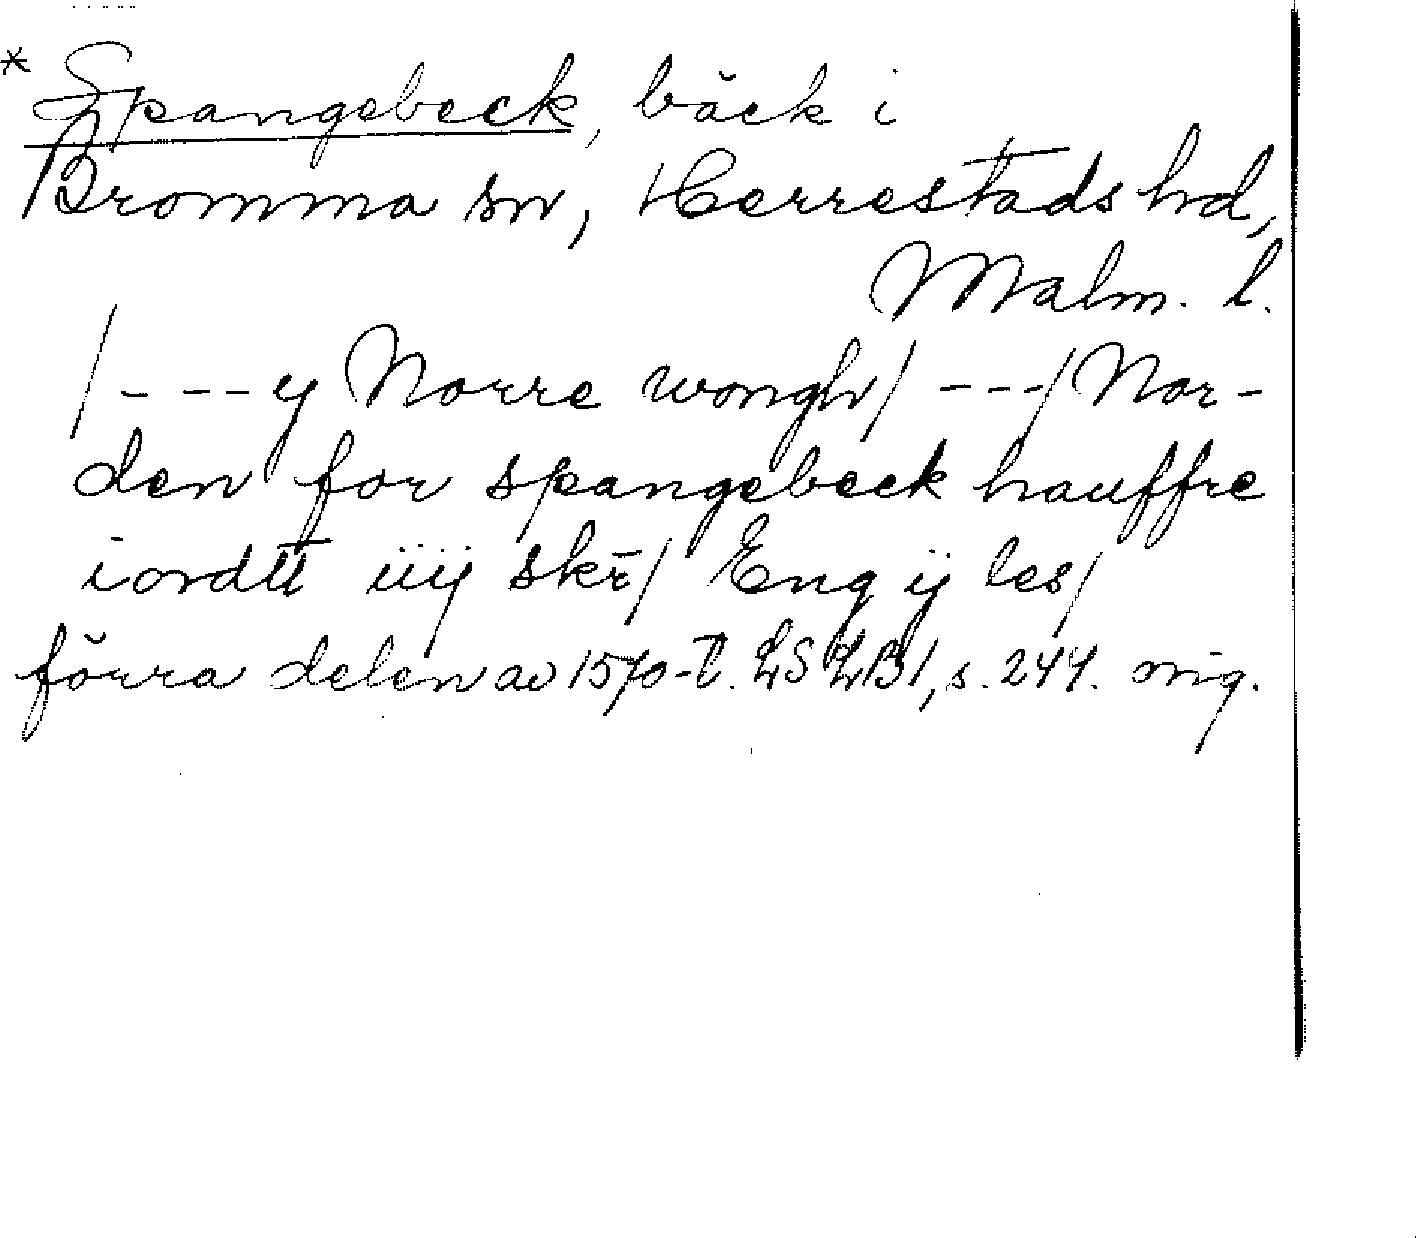 * Spangebeck, bäck i
Bromma sn, Herrestads hd,
Malm. l.
/---y Norre wongh/ ---/ Nor-
den for spangebeck hauffre
iordtt iiij skr̄/ Eng ij les/
förra delen av 1570-t. LSLB1, s. 244. orig.